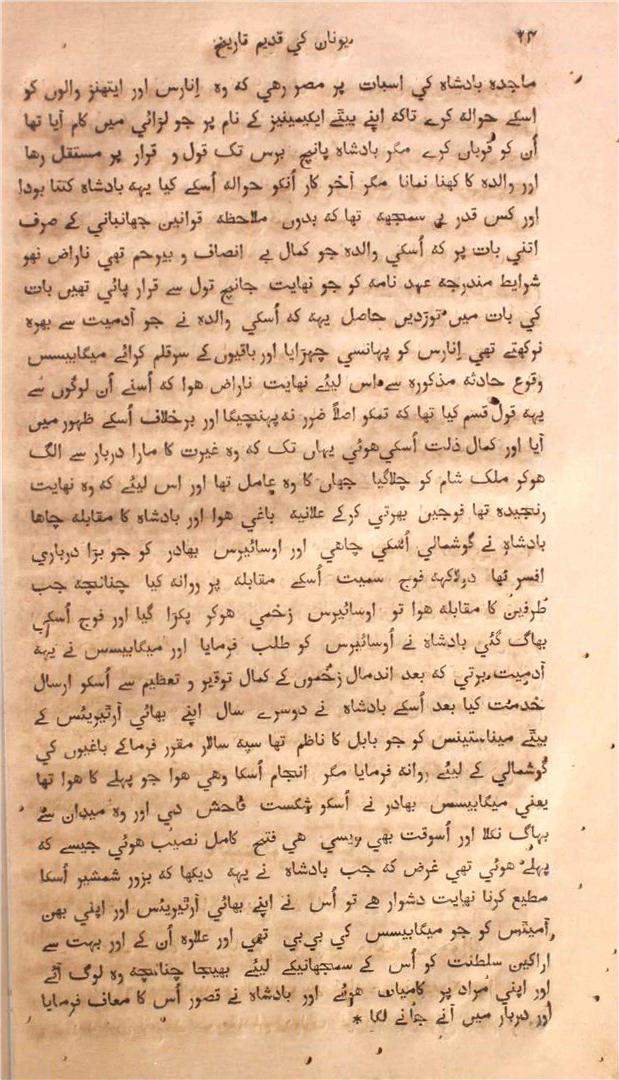 ۲۴ یونان کی قدیم تاریخ
ماجدہ بادشاہ کي اسبات پر مصر رھي کہ وہ اِنارس اور ایتھنز والوں کو
اسکے حوالہ کرے تاکہ اپنے بیٹے ایکیمینیز کے نام پر جو لڑائي میں کام آیا تھا
اُن کو قرباں کرے مگر بادشاہ پانچ برس تک قول و قرار پر مستقل رھا
اور والدہ کا کھنا نمانا مگر آخر کار اُنکو حوالہ اُسکے کیا یہہ بادشاہ کتنا بودا
اور کس قدر بے سمجھہ تھا کہ بدوں ملاحظہ قوانین جھانباني کے صرف
اتني بات پر کہ اُسکي والدہ جو کمال بے انصاف و بیرحم تھي ناراض نھو
شرایط مندرجہ عہد نامہ کو جو نھایت جانچ تول سے قرار پائي تھیں بات
کي بات میں توڑدیں حاصل یہہ کہ اُسکي والدہ نے جو آدمیت سے بھرہ
نرکھتے تھي اِنارس کو پھانسي چڑھایا اور باقیوں کے سرقلم کرائے میگابیسس
وقوع حادثہ مذکورہ سے اس لیئے نھایت ناراض ھوا کہ اُسنے اُن لوگوں سے
یہہ قول قسم کیا تھا کہ تمکو اصلاً ضرر نہ پہنچیگا اور برخلاف اُسکے ظہور میں
آیا اور کمال ذلت اُسکي ھوئي یہاں تک کہ وہ غیرت کا مارا دربار سے الگ
ھوکر ملک شام کو چلاگیا جھاں کا وہ عامل تھا اور اس لیئے کہ وہ نھایت
رنجیدہ تھا فوجیں بھرتي کرکے علانیہ باغي ھوا اور بادشاہ کا مقابلہ چاھا
بادشاہ نے گوشمالي اُسکي چاھي اور اوسائیرس بھادر کو جو بڑا درباري
افسر تھا دولاکھہ فوج سمیت اُسکے مقابلہ پر روانہ کیا چنانچہ جب
طرفین کا مقابلہ ھوا تو اوسائیرس زخمي ھوکر پکڑا گیا اور فوج اُسکي
بھاگ گئي بادشاہ نے اُوسائیرس کو طلب فرمایا اور میگابیسس نے یہہ
آدمیت برتي کہ بعد اندمال زخموں کے کمال توقیر و تعظیم سے اُسکو ارسال
خدمت کیا بعد اُسکے بادشاہ نے دوسرے سال اپنے بھائي آرٹیریئس کے
بیٹے میناسٹینس کو جو بابل کا ناظم تھا سپہ سالار مقرر فرماکے باغیوں کي
گوشمالي کے لیئے روانہ فرمایا مگر انجام اُسکا وھي ھوا جو پہلے کا ھوا تھا
یعني میگابیسس بھادر نے اُسکو شکست فاحش دي اور وہ میدان سے
بھاگ نکلا اور اُسوقت بھي ویسي ھي فتح کامل نصیب ھوئي جیسے کہ
پہلے ھوئي تھي غرض کہ جب بادشاہ نے یہہ دیکھا کہ بزور شمشیر اُسکا
مطیع کرنا نھایت دشوار ھے تو اُس نے اپنے بھائي آرٹیریئس اور اپني بھن
آمیٹس کو جو میگابیسس کي بي بي تھي اور علاوہ اُن کے اور بہت سے
اراکین سلطنت کو اُس کے سمجھانیکے لیئے بھیجا چنانچہ وہ لوگ آئے
اور اپني مراد پر کامیاب ھوئے اور بادشاہ نے قصور اُس کا معاف فرمایا
اور دربار میں آنے جانے لگا *